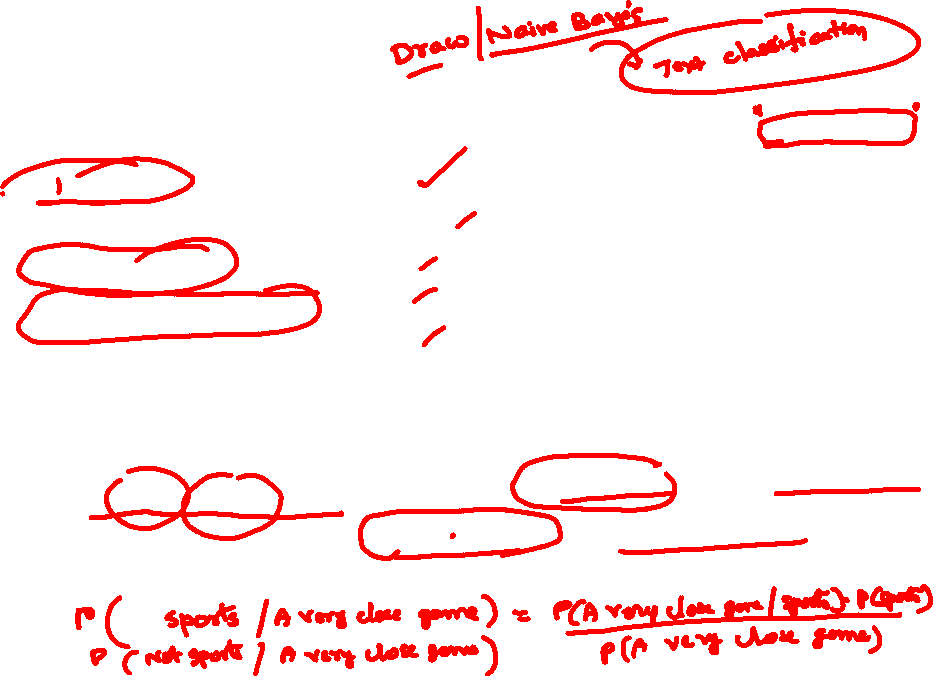 Draw | Naive Baye's
Text classification
P ( sports / A very close game ) = P(A very close game / sports) . P(sports)
P(A very close game)
P ( Not sports / A very close game )